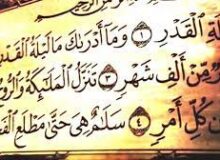 لَةِ ٱلْقَدْرِ ١ وَمَآ أَدْرَىٰكَ مَا لَيْلَةُ ٱلْقَدْ
مِّنْ أَلْفِ شَهْرٍ ٣ تَنَزَّلُ ٱلْمَلَٰٓئِكَةُ وَٱلرُّو
مِّن كُلِّ أَمْرٍ ٤ سَلَٰمٌ هِىَ حَتَّىٰ مَطْلَعِ ٱلْفَ